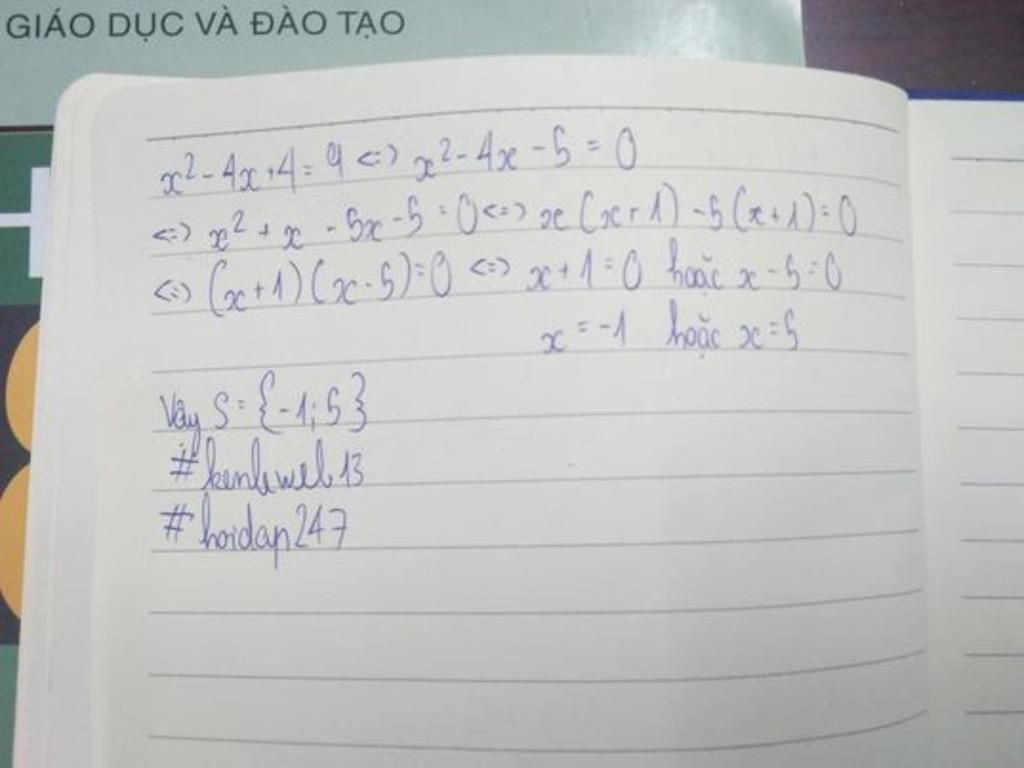 GIÁO DỤC VÀ ĐÀO TẠO
x² - 4x + 4 = 9 <=> x² - 4x - 5 = 0
<=> x² + x - 5x - 5 = 0 <=> x (x + 1) - 5 (x + 1) = 0
<=> (x + 1) (x - 5) = 0 <=> x + 1 = 0 hoặc x - 5 = 0
x = -1 hoặc x = 5
Vậy S = {-1; 5}
#hoidap247